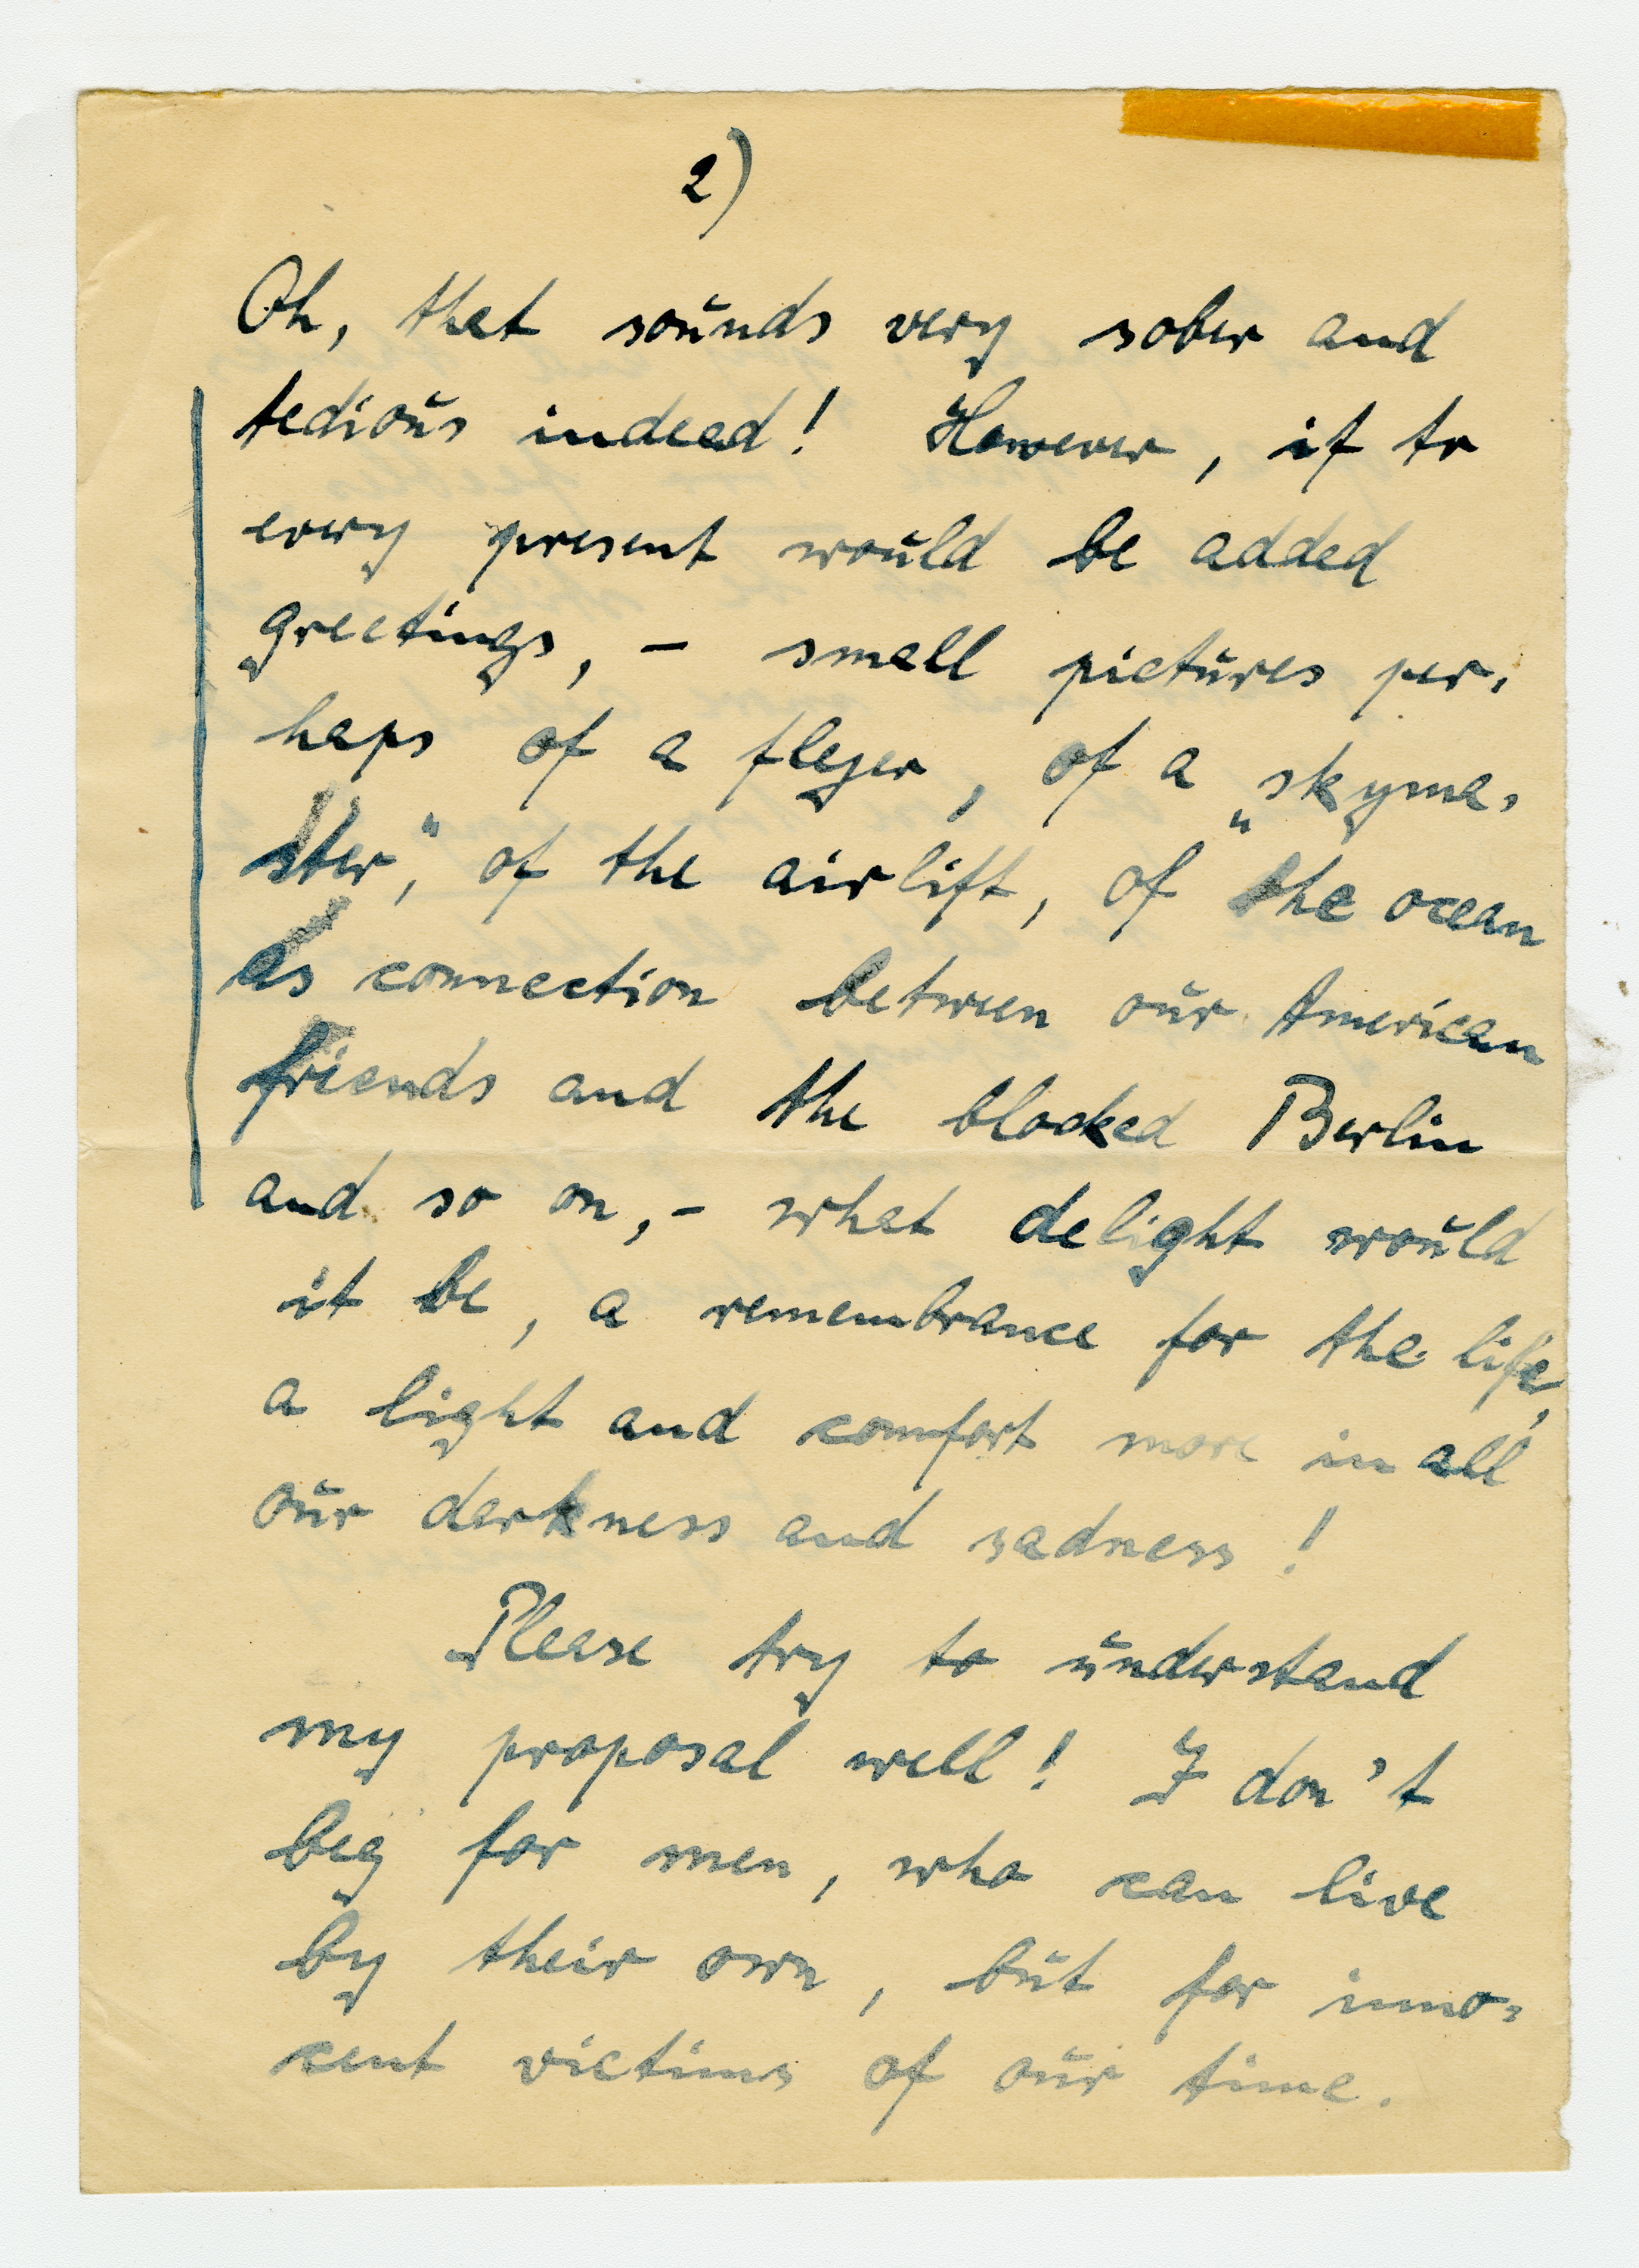 2)
Oh, that sounds very sober and
tedious indeed! However, if to
every present would be added
greetings, - small pictures per-
haps of a fleyer, of a „skyma-
ster", of the airlift, of the ocean
as connection between our American
friends and the blocked Berlin
and so on, - what delight would
it be, a remembrance for the life,
a light and comfort more in all
our darkness and sadness!
Please try to understand
my proposal well! I don't
beg for men, who can live
by their own, but for inno-
cent victims of our time.